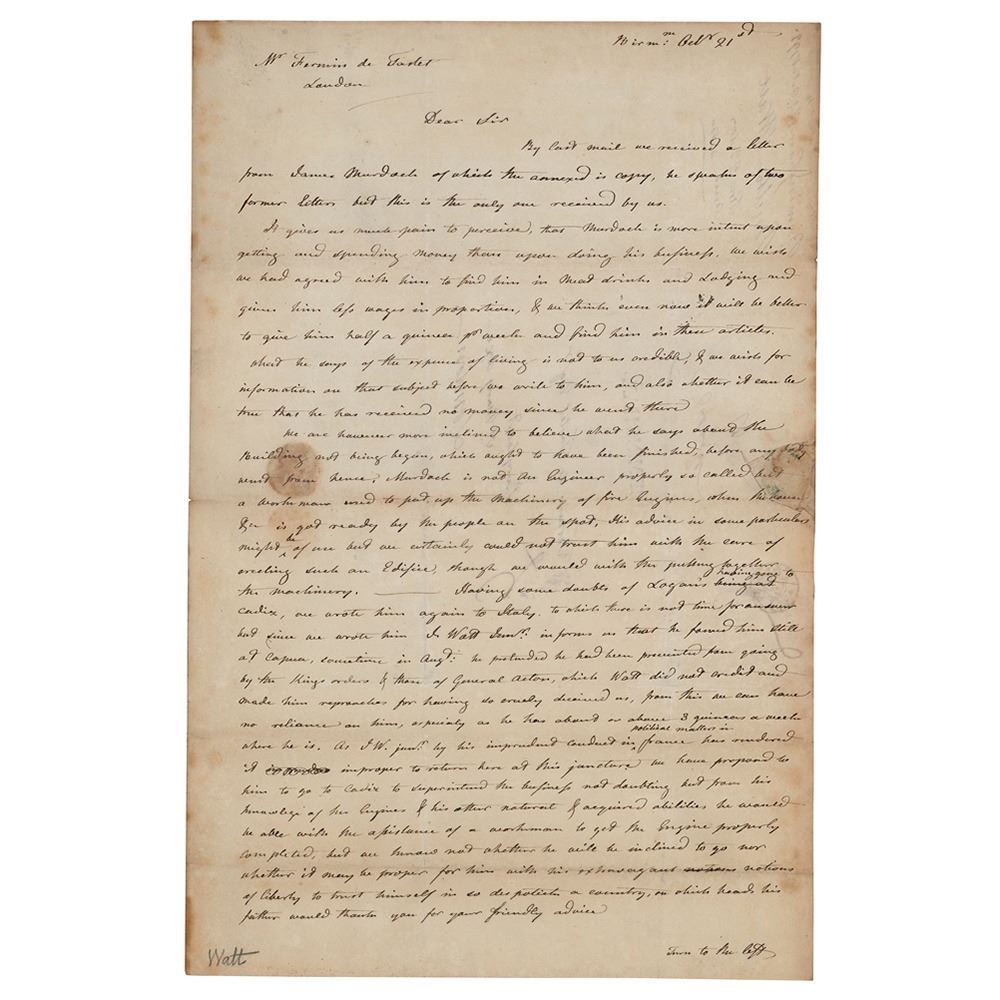 Birmm: Octr 21st
Mr Fermin de Tastet
London
Dear Sir
By last mail we received a letter
from James Murdock of which the annexed is copy, he speaks of two
former letters but this is the only one received by us.
It gives us much pain to perceive, that Murdock is more intent upon
getting and spending money than upon doing his business, we wish
we had agreed with him to find him in Meat drink and Lodging and
given him less wages in proportion, & we think even now it will be better
to give him half a guinea pr week and find him in these articles.
what he says of the expence of living is not to us credible & we wish for
information on that subject before we write to him, and also whether it can be
true that he has received no money since he went there
We are however more inclined to believe what he says about the
Building not being began, which ought to have been finished, before any body
went from hence; Murdock is not an Engineer properly so called but
a workman used to put up the Machinery of fire Engines, when the house
&c is got ready by the people on the spot, His advice in some particulars
might be of use but we certainly could not trust him with the care of
erecting such an Edifice, though we would with the putting together
the machinery. —— Having some doubts of Logan's being at having gone to
Cadix, we wrote him again to Italy, to which there is not time for answer
but since we wrote him Js Watt Junr: informs us that he found him still
at Capua, sometime in Augt: he pretended he had been prevented from going
by the Kings orders & those of General Acton, which Watt did not credit and
made him reproaches for having so cruely deceived us, from this we can have
no reliance on him, especialy as he has about or above 3 guineas a week
where he is. As J W. junr. by his imprudent conduct in political matters in france has rendered
it improper to return here at this juncture we have proposed to
him to go to Cadix to superintend the business not doubting but from his
knowlege of the Engines & his other natural & acquired abilities he would
be able with the assistance of a workman to get the Engine properly
completed, but we know not whether he will be inclined to go nor
whether it may be proper for him with his extravagant notions
of liberty to trust himself in so despotick a country, on which heads his
father would thank you for your friendly advice
Turn to the left
Watt